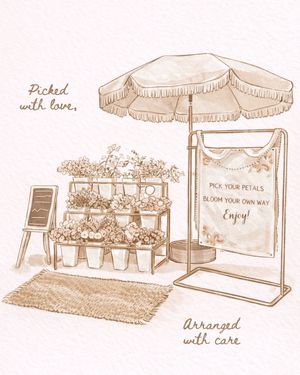 Picked
with love,
PICK YOUR PETALS
BLOOM YOUR OWN WAY
Enjoy!
Arranged
with care